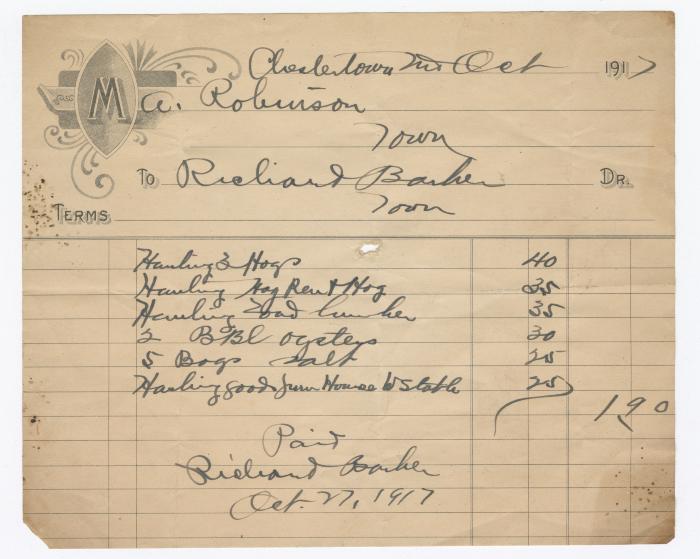 Chestertown Md Oct 1917
M a. Robinson
Town
To Richard Barker Dr.
Town
Terms
Hauling 2 Hogs 40
Hauling Hog 35
Hauling load lumber 35
2 BBl oysters 30
5 Bags salt 25
Hauling goods from House to Stable 25
190
Paid
Richard Barker
Oct. 27, 1917